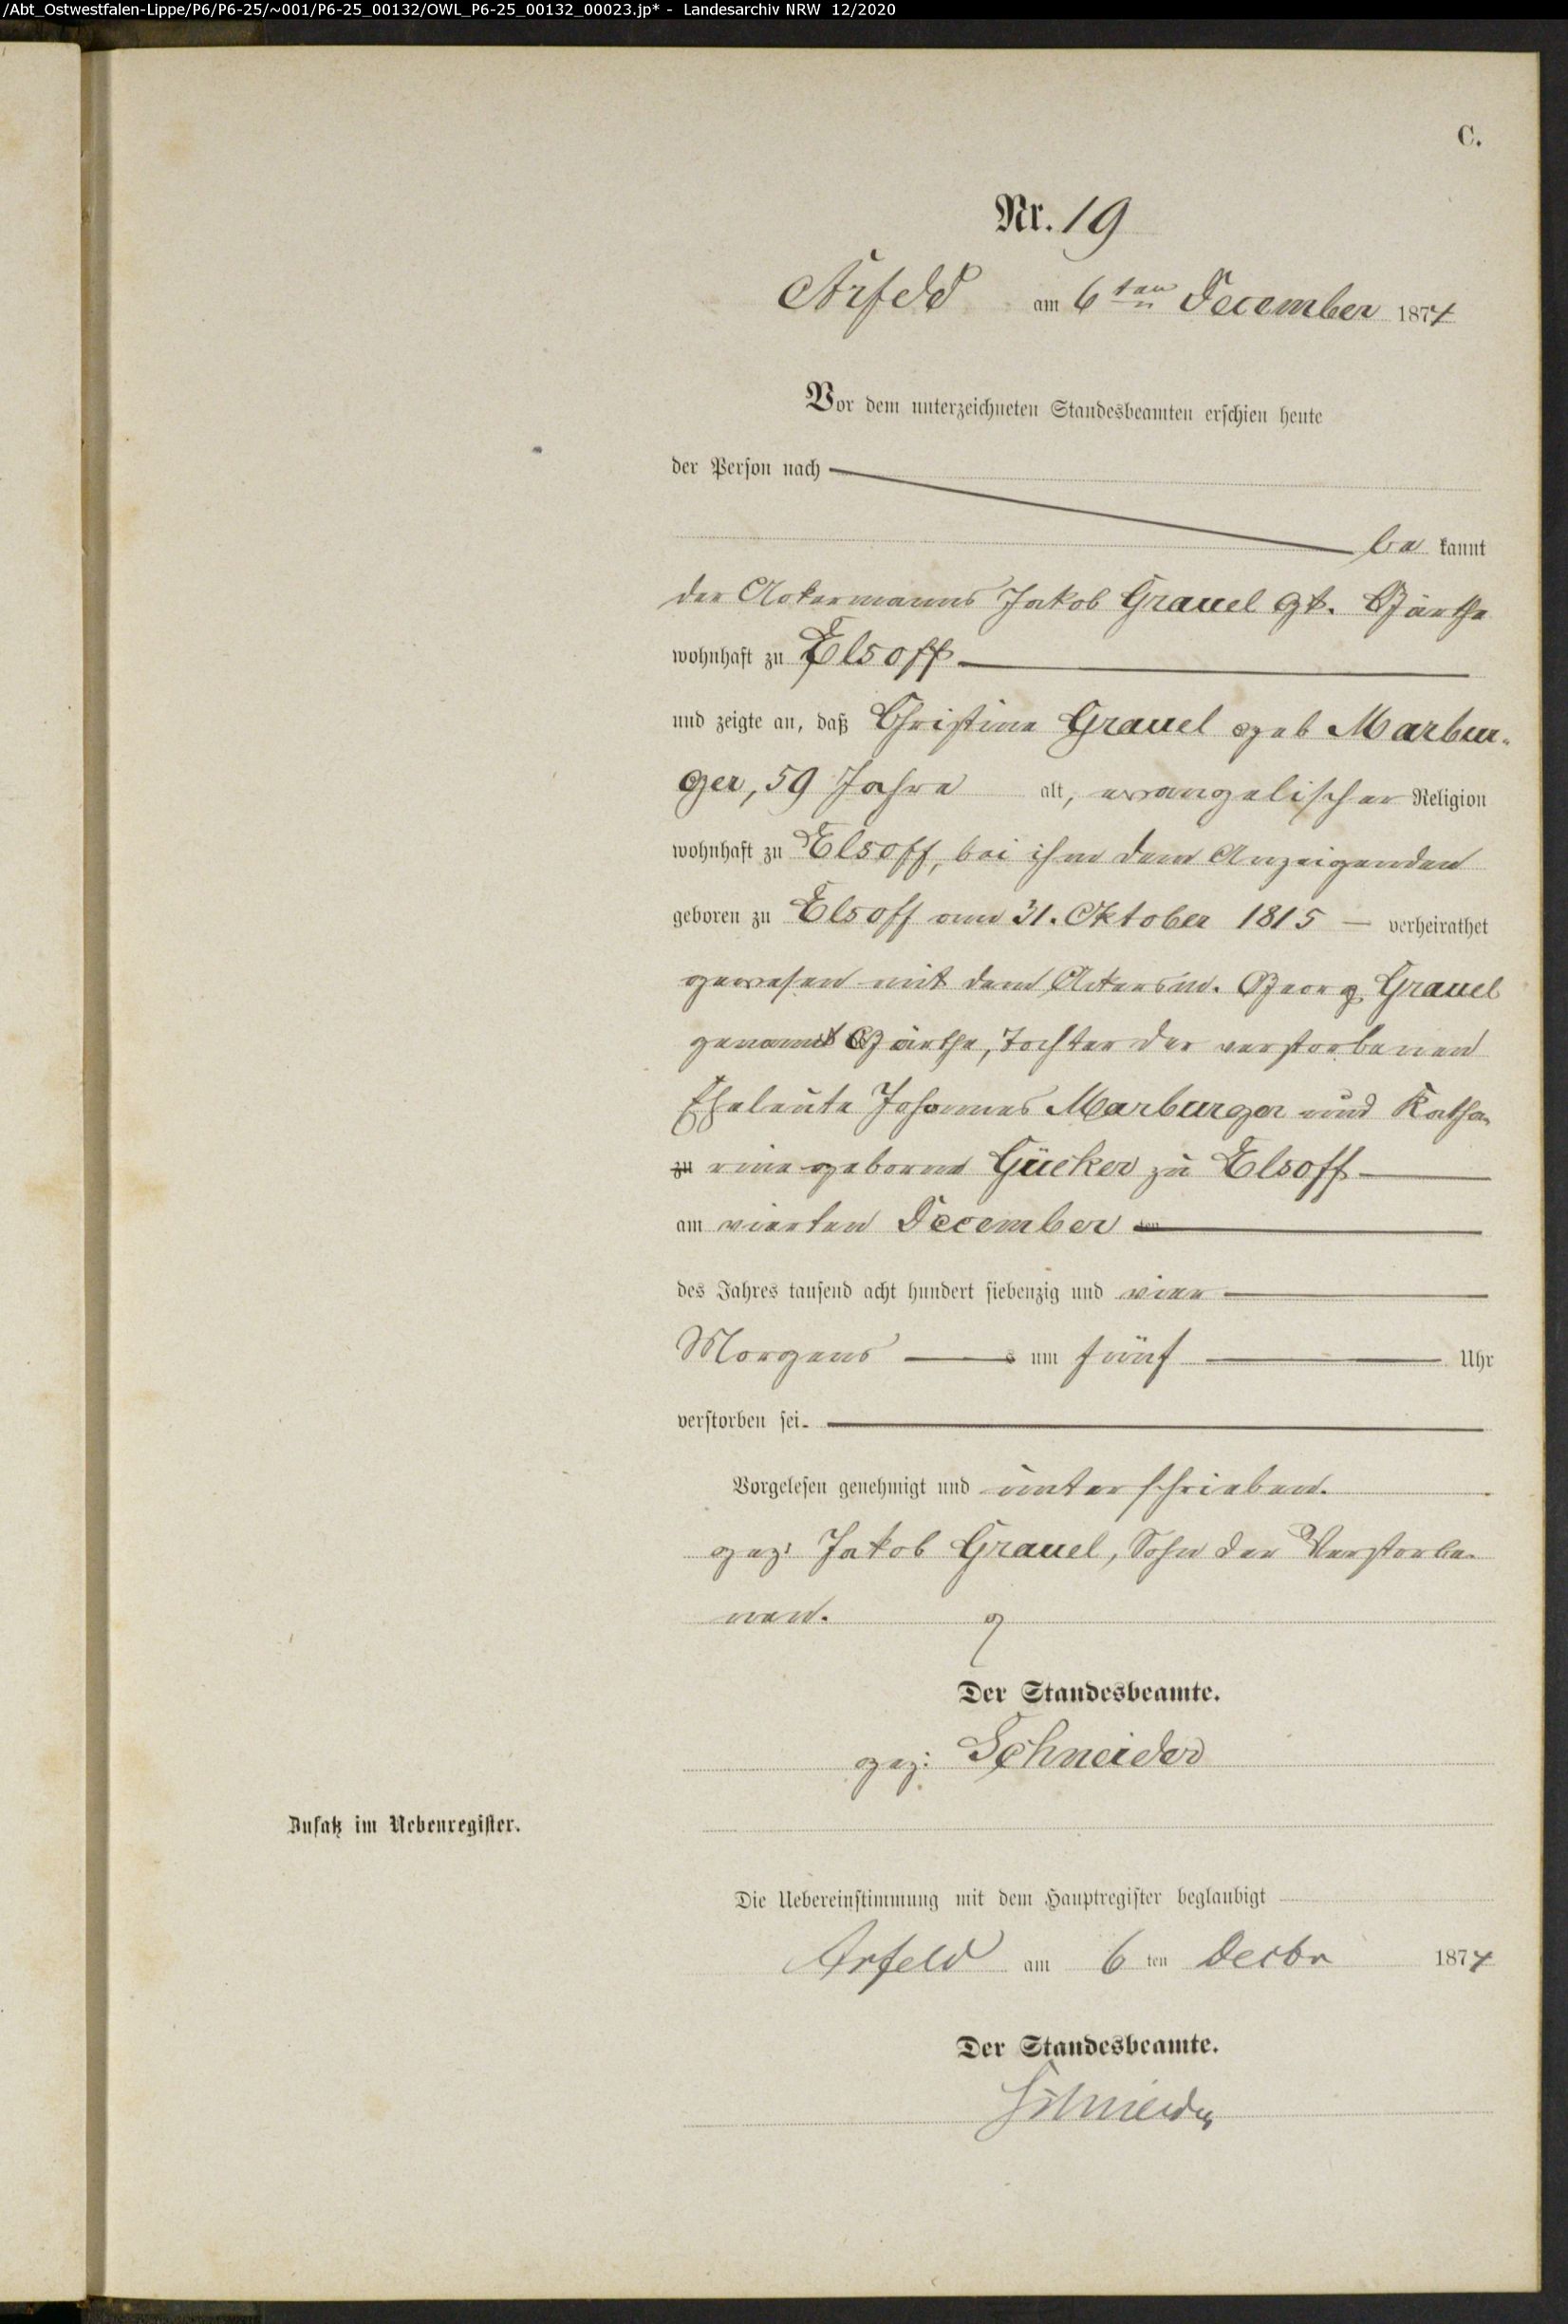 /Abt_Ostwestfalen-Lippe/P6/P6-25/~001/P6-25_00132/OWL_P6-25_00132_00023.jp* - Landesarchiv NRW 12/2020
C.
Nr. 19
Arfeld am 6ten December 1874
Vor dem unterzeichneten Standesbeamten erschien heute
der Person nach
be kannt
der Ackermanns Jakob Grauel gt. Gärthe
wohnhaft zu Elsoff
und zeigte an, daß Christine Grauel geb Marbur-
ger, 59 Jahre alt, evangelischer Religion
wohnhaft zu Elsoff, bei ihm dem Anzeigenden
geboren zu Elsoff am 31. Oktober 1815 — verheirathet
gewesen mit dem Ackersm. Georg Grauel
genannt Gärthe, Tochter der verstorbenen
Eheleute Johannes Marburger und Katha-
zu rine geborne Gücker zu Elsoff
am vierten December ten
des Jahres tausend acht hundert siebenzig und vier
Morgens s um fünf Uhr
verstorben sei.
Vorgelesen genehmigt und unterschrieben.
gez: Jakob Grauel, Sohn der Verstorbe-
nen.
Der Standesbeamte.
gez: Schneider
Zusatz im Nebenregister.
Die Uebereinstimmung mit dem Hauptregister beglaubigt
Arfeld am 6 ten Decbr 1874
Der Standesbeamte.
Schneider